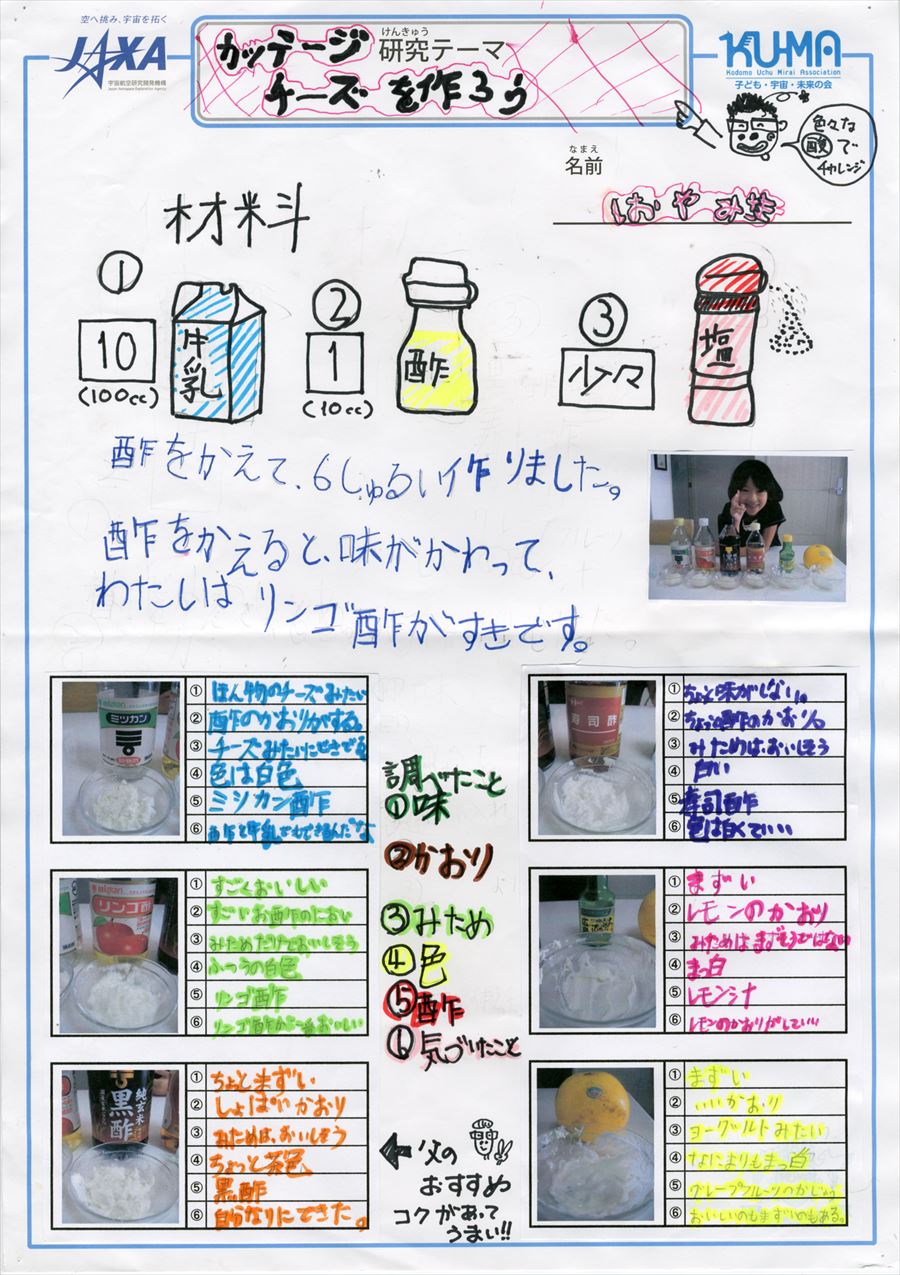 空へ挑み、宇宙を拓く
JAXA
宇宙航空研究開発機構
Japan Aerospace Exploration Agency
けんきゅう
研究テーマ
カッテージ
チーズを作ろう
KU-MA
Kodomo Uchu Mirai Association
子ども・宇宙・未来の会
色々な
酸で
チャレンジ
なまえ
名前
材料
①
10
(100cc)
牛乳
②
1
(10cc)
酢
③
少々
塩
酢をかえて、6しゅるい作りました。
酢をかえると、味がかわって、
わたしは リンゴ酢がすきです。
ミツカン
①ほん物のチーズみたい
②酢のかおりがする。
③チーズみたい
④色は白色
⑤ミツカン酢
⑥お酢と牛乳でもできるんだな
mizkan
リンゴ酢
①すごくおいしい
②すごいお酢のにおい
③みためだけどおいしそう
④ふつうの白色
⑤リンゴ酢
⑥リンゴ酢が一番おいしい
純玄米
黒酢
①ちょとまずい
②しょぱいかおり
③みためは、おいしそう
④ちょっと茶色
⑤黒酢
⑥自分なりにできた。
調べたこと
①味
②かおり
③みため
④色
⑤酢
⑥気づいたこと
←父の
おすすめ
コクがあって
うまい!!
寿司酢
①ちょと味がしない。
②ちょっと酢のかおり。
③みためは、おいしそう
④白い
⑤寿司酢
⑥色は白くていい
①まずい
②レモンのかおり
③みためはまずそうではない
④まっ白
⑤レモン汁
⑥レモンのかおりがしていい
①まずい
②いいかおり
③ヨーグルトみたい
④なによりもまっ白
⑤グレープフルーツのかじゅう
⑥おいしいのもまずいのもある。